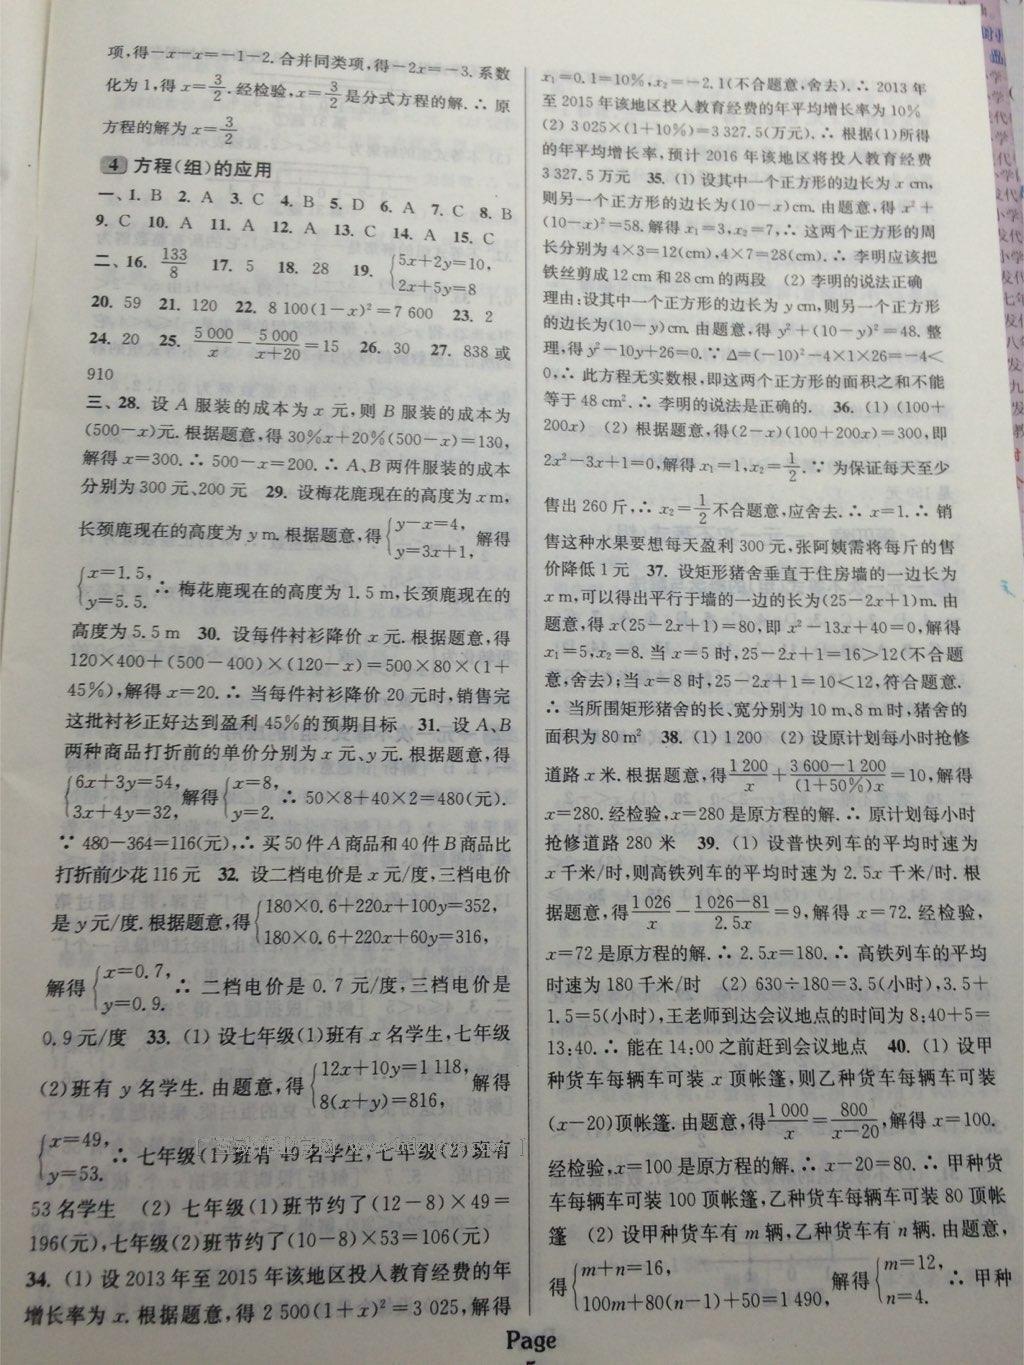 项,得-x-x=-1-2.合并同类项,得-2x=-3.系数
化为1,得x=3/2.经检验,x=3/2是分式方程的解.∴原
方程的解为x=3/2
4 方程(组)的应用
一、1. B 2. A 3. C 4. B 5. D 6. A 7. C 8. B
9. C 10. A 11. A 12. A 13. C 14. A 15. C
二、16. 133/8 17. 5 18. 28 19. {5x+2y=10, 2x+5y=8
20. 59 21. 120 22. 8 100(1-x)²=7 600 23. 2
24. 20 25. 5 000/x-5 000/(x+20)=15 26. 30 27. 838或
910
三、28. 设A服装的成本为x元,则B服装的成本为
(500-x)元.根据题意,得30%x+20%(500-x)=130,
解得x=300.∴500-x=200.∴A、B两件服装的成本
分别为300元、200元 29. 设梅花鹿现在的高度为x m,
长颈鹿现在的高度为y m.根据题意,得{y-x=4, y=3x+1,解得
{x=1.5, y=5.5.∴梅花鹿现在的高度为1.5 m,长颈鹿现在的
高度为5.5 m 30. 设每件衬衫降价x元.根据题意,得
120×400+(500-400)×(120-x)=500×80×(1+
45%),解得x=20.∴当每件衬衫降价20元时,销售完
这批衬衫正好达到盈利45%的预期目标 31. 设A、B
两种商品打折前的单价分别为x元、y元.根据题意,得
{6x+3y=54, 3x+4y=32,解得{x=8, y=2.∴50×8+40×2=480(元).
∵480-364=116(元),∴买50件A商品和40件B商品比
打折前少花116元 32. 设二档电价是x元/度,三档电价
是y元/度.根据题意,得{180×0.6+220x+100y=352, 180×0.6+220x+60y=316,
解得{x=0.7, y=0.9.∴二档电价是0.7元/度,三档电价是
0.9元/度 33. (1)设七年级(1)班有x名学生,七年级
(2)班有y名学生.由题意,得{12x+10y=1 118, 8(x+y)=816,解得
{x=49, y=53.∴七年级(1)班有49名学生,七年级(2)班有
53名学生 (2)七年级(1)班节约了(12-8)×49=
196(元),七年级(2)班节约了(10-8)×53=106(元)
34. (1)设2013年至2015年该地区投入教育经费的年
增长率为x.根据题意,得2 500(1+x)²=3 025,解得
x₁=0.1=10%,x₂=-2.1(不合题意,舍去).∴2013年
至2015年该地区投入教育经费的年平均增长率为10%
(2)3 025×(1+10%)=3 327.5(万元).∴根据(1)所得
的年平均增长率,预计2016年该地区将投入教育经费
3 327.5万元 35. (1)设其中一个正方形的边长为x cm,
则另一个正方形的边长为(10-x)cm.由题意,得x²+
(10-x)²=58.解得x₁=3,x₂=7,∴这两个正方形的周
长分别为4×3=12(cm),4×7=28(cm).∴李明应该把
铁丝剪成12 cm和28 cm的两段 (2)李明的说法正确
理由:设其中一个正方形的边长为y cm,则另一个正方形
的边长为(10-y)cm.由题意,得y²+(10-y)²=48.整
理,得y²-10y+26=0.∵Δ=(-10)²-4×1×26=-4<
0,∴此方程无实数根,即这两个正方形的面积之和不能
等于48 cm².∴李明的说法是正确的. 36. (1)(100+
200x) (2)根据题意,得(2-x)(100+200x)=300,即
2x²-3x+1=0,解得x₁=1,x₂=1/2.∵为保证每天至少
售出260斤,∴x₂=1/2不合题意,应舍去.∴x=1.∴销
售这种水果要想每天盈利300元,张阿姨需将每斤的售
价降低1元 37. 设矩形猪舍垂直于住房墙的一边长为
x m,可以得出平行于墙的一边的长为(25-2x+1)m.由
题意,得x(25-2x+1)=80,即x²-13x+40=0,解得
x₁=5,x₂=8.当x=5时,25-2x+1=16>12(不合题
意,舍去);当x=8时,25-2x+1=10<12,符合题意.
∴当所围矩形猪舍的长、宽分别为10 m、8 m时,猪舍的
面积为80 m² 38. (1)1 200 (2)设原计划每小时抢修
道路x米.根据题意,得1 200/x+(3 600-1 200)/((1+50%)x)=10,解得
x=280.经检验,x=280是原方程的解.∴原计划每小时
抢修道路280米 39. (1)设普快列车的平均时速为
x千米/时,则高铁列车的平均时速为2.5x千米/时.根
据题意,得1 026/x-(1 026-81)/2.5x=9,解得x=72.经检验,
x=72是原方程的解.∴2.5x=180.∴高铁列车的平均
时速为180千米/时 (2)630÷180=3.5(小时),3.5+
1.5=5(小时),王老师到达会议地点的时间为8:40+5=
13:40.∴能在14:00之前赶到会议地点 40. (1)设甲
种货车每辆车可装x顶帐篷,则乙种货车每辆车可装
(x-20)顶帐篷.由题意,得1 000/x=800/(x-20),解得x=100.
经检验,x=100是原方程的解.∴x-20=80.∴甲种货
车每辆车可装100顶帐篷,乙种货车每辆车可装80顶帐
篷 (2)设甲种货车有m辆,乙种货车有n辆.由题意,
得{m+n=16, 100m+80(n-1)+50=1 490,解得{m=12, n=4.∴甲种
Page